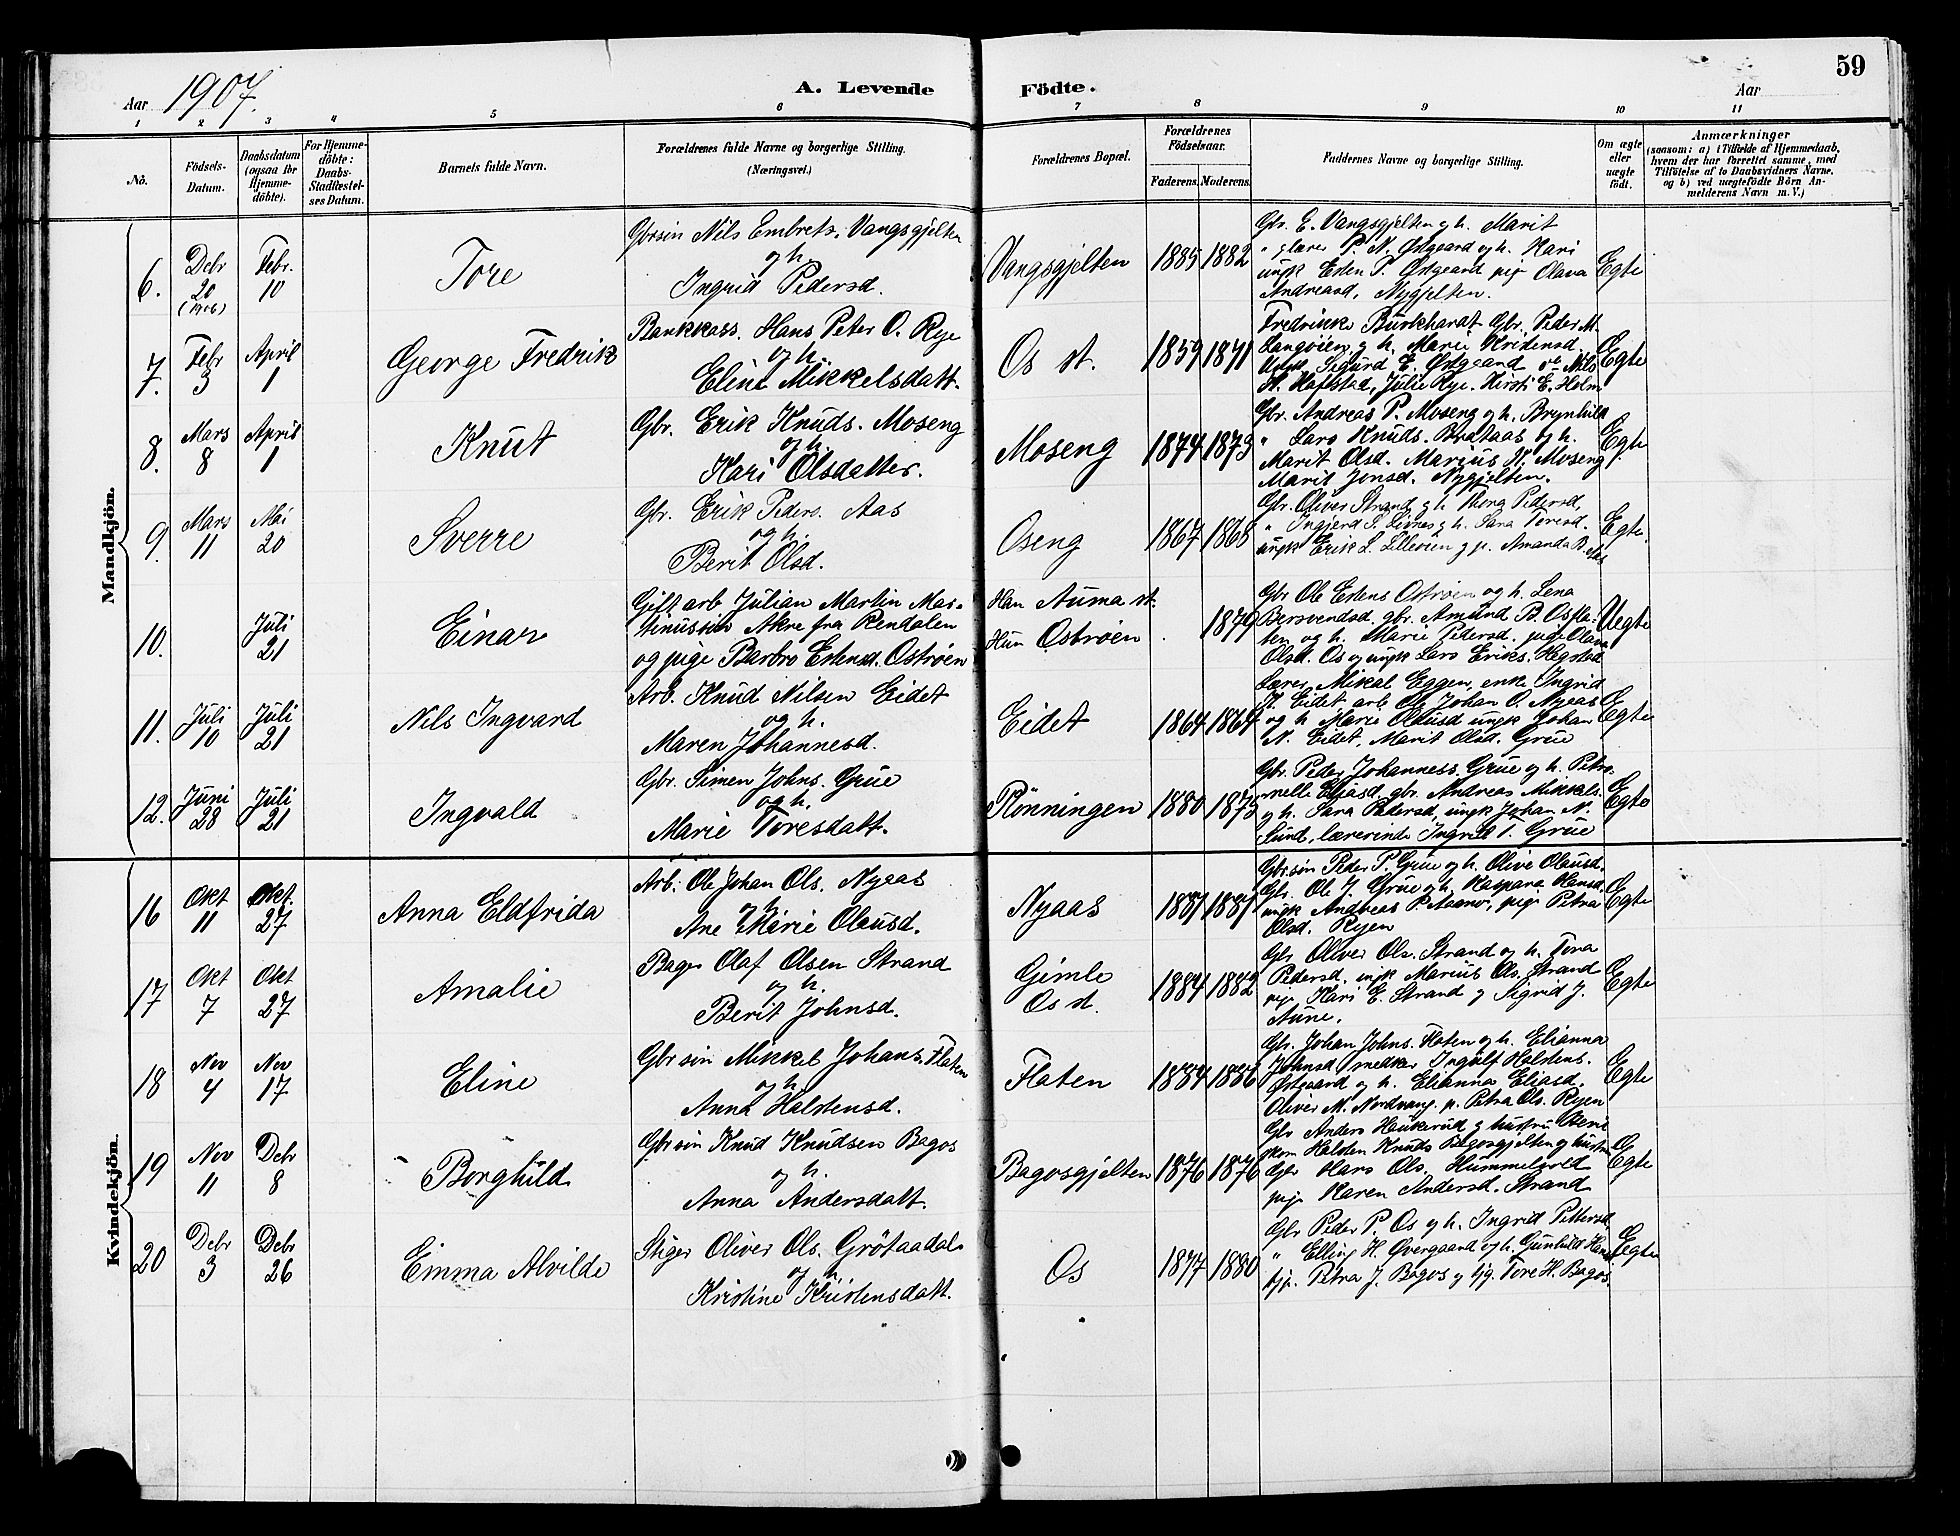 59
Aar 1907. A. Levende Födte. Aar
1 2 3 4 5 6 7 8 9 10 11
No.
Födsels-Datum.
Daabsdatum (ogsaa for Hjemmedöbte).
For Hjemmedöbte: Daabs-Stadfæstelses Datum.
Barnets fulde Navn.
Forældrenes fulde Navne og borgerlige Stilling. (Næringsvei.)
Forældrenes Bopæl.
Forældrenes Födselsaar.
Faderens. Moderens.
Faddernes Navne og borgerlige Stilling.
Om ægte eller uægte födt.
Anmærkninger
(saasom: a) i Tilfælde af Hjemmedaab, hvem der har forrettet samme, med Tilföielse af to Daabsvidners Navne, og b) ved uægtefödte Börn Anmelderens Navn m. V.)
Mandkjön.
6. Debr 20 (1906) Febr. 10 Tore
Gbrsön Nils Embrets. Vangsgjelten
og h.
Ingrid Pedersd.
Vangsgjelten 1885 1882
Gbr. E. Vangsgjelten og h. Marit
" P. N. Østgaard og h. Kari
ungk Esten P. Østgaard pige Olava
Andreasd. Nygjelten.
Egte
7. Febr 3 April 1 George Fredrik
Bankkass. Hans Peter O. Rye
og h.
Eline Mikkelsdatt.
Os st. 1859 1871
Fredrikke Burkhardt Gbr. Peder M.
Langøien og h. Marie
Sigurd E. Østgaard Nils
H. Hafstad, Julie Rye. Kirsti E. Holm
Egte
8. Mars 8 April 1 Knut
Gbr. Erik Knuds. Moseng
og h.
Kari Olsdatter.
Moseng 1874 1873
Gbr. Andreas P. Moseng og h. Brynhild
" Lars Knuds. Brataas og h.
Marit Olsd. Marius K. Moseng
Marit Jonsd. Nygjelten.
Egte
9. Mars 11 Mai 20 Sverre
Gbr. Erik Peders. Aas
og h.
Berit Olsd.
Oseng 1867 1868
Gbr. Oliver Strand og h Pedersd,
" Ingjerd S. og h. Sara Toresd.
ungk Erik L. Lilleøien og p. Amanda B. Aas
Egte.
10. Juli 21 Einar
Gift arb Julian Martin Mar-
tinussen Akre fra Rendalen
og pige Barbro Estensd. Ostrøen
Han Auma st.
Hun Ostrøen
1879
Gbr Ole Estens Ostrøen og h. Lena
Bersvendsd. gbr. Amund B. Osfla-
ten og h. Marie Pedersd. pige Olava
Olsd. Os og ungk Lars Eriks. Hegstad
Uegte
11. Juli 10 Juli 21 Nils Ingvard
Arb. Knud Nilsen Eidet
og h.
Maren Johannesd.
Eidet 1864 1864
Lærer Mikal Eggen, enke Ingrid
K. Eidet arb Ole Johan O. Nyaas
og h Marie Olausd ungk Johan
N. Eidet, Marit Olsd. Grue
Egte
12. Juni 28 Juli 21 Ingvald
Gbr. Simen Johns. Grue
og h.
Marie Toresdatt.
Rönningen 1880 1875
Gbr. Peder Johanness. Grue og h. Petro-
nelle Eliasd. gbr. Andreas Mikkels.
og h. Sara Pedersd, ungk Johan N.
Sund, lærerinde Ingrid T. Grue
Egte
Kvindekjön.
16 Okt 11 Okt. 27 Anna Eldfrida
Arb. Ole Johan Ols. Nyaas
og h.
Ane Marie Olausd.
Nyaas 1881 1881
Gbr.sön Peder P. Grue og h. Olive Olausd.
Gbr. Ole J. Grue og h. Kaspara Hansd.
ungk Andreas P. Aasnes, pige Petra
Olsd. Ryen
Egte
17 Okt 7 Okt 27 Amalie
Bager Olaf Olsen Strand
og h.
Berit Johnsd.
Gimle
Os st.
1884 1882
Gbr Oliver Ols. Strand og h. Tora
Pedersd. ungk Marius Ols. Strand
pige Kari E. Strand og Sigrid J.
Aune.
Egte
18 Nov 4 Nov 17 Eline
Gbr sön Mikkel Johans. Flaten
og h
Anna Halstensd.
Flaten 1884 1886
Gbr. Johan Johns. Flaten og h. Elianna
Johnsd smedker Ingulf Halstens.
Østgaard og h. Elianna Eliasd.
Oliver M. Nordvang. p. Petra Ols. Ryen
Egte
19 Nov 11 Debr 8 Borghild
Gbr sön Knud Knudsen Bagos
og h.
Anna Andersdatt.
Bagosgjelten 1876 1876
Gbr Anders Haukerud og hustru
Halsten Knuds Bagosgjelten og hustru
Gbr Lars Ols. Hummelvold
pige Karen Andersd. Strand
Egte
20 Debr 3 Debr 26 Emma Alvilde
Stiger Oliver Ols. Grötaadal
og h
Kristine Kristensdatt.
Os 1877 1880
Gbr Peder P. Os og h. Ingrid Pettersd
" Elling H. Øvergaard og h. Gunhild
tjp. Petra J. Bagos og tjg. Tore H. Bagos
Egte